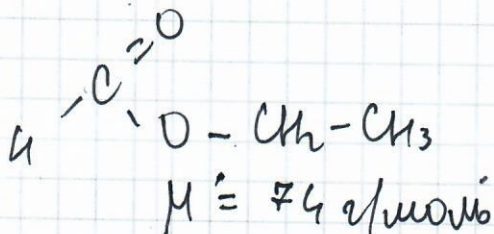 O
C
H O - CH₂ - CH₃
M = 74 г/моль